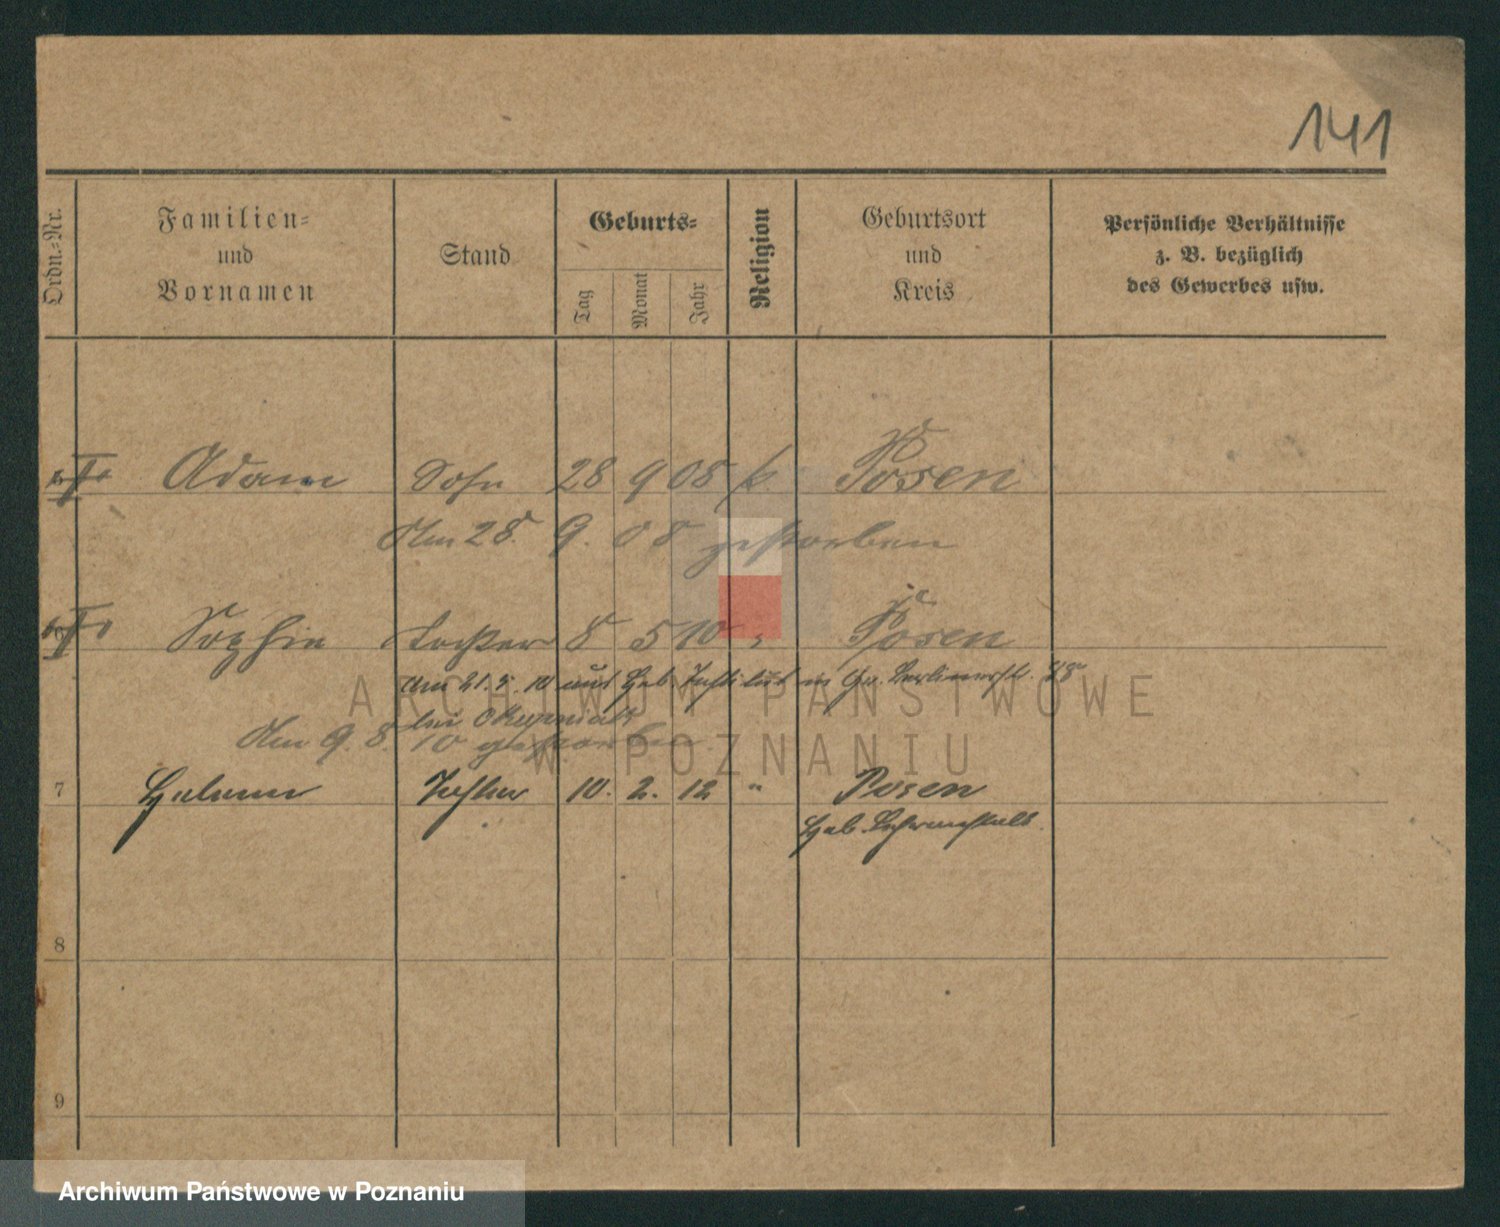 141
Ordn.-Nr.
Familien-
und
Vornamen
Stand
Geburts-
Tag
Monat
Jahr
Religion
Geburtsort
und
Kreis
Persönliche Verhältnisse
z. B. bezüglich
des Gewerbes usw.
Adam Sohn 28 9 08 k Posen
Am 28. 9. 08 gestorben
Sophie Tochter 8 5 10 " Posen
Am 21. 5. 10 aus Heb. Institut in
bei
Am 9. 8. 10 gestorben
7 Helene Tochter 10. 2. 12 " Posen
Heb. Lehranstalt
8
9
ARCHIWUM PAŃSTWOWE
W POZNANIU
Archiwum Państwowe w Poznaniu